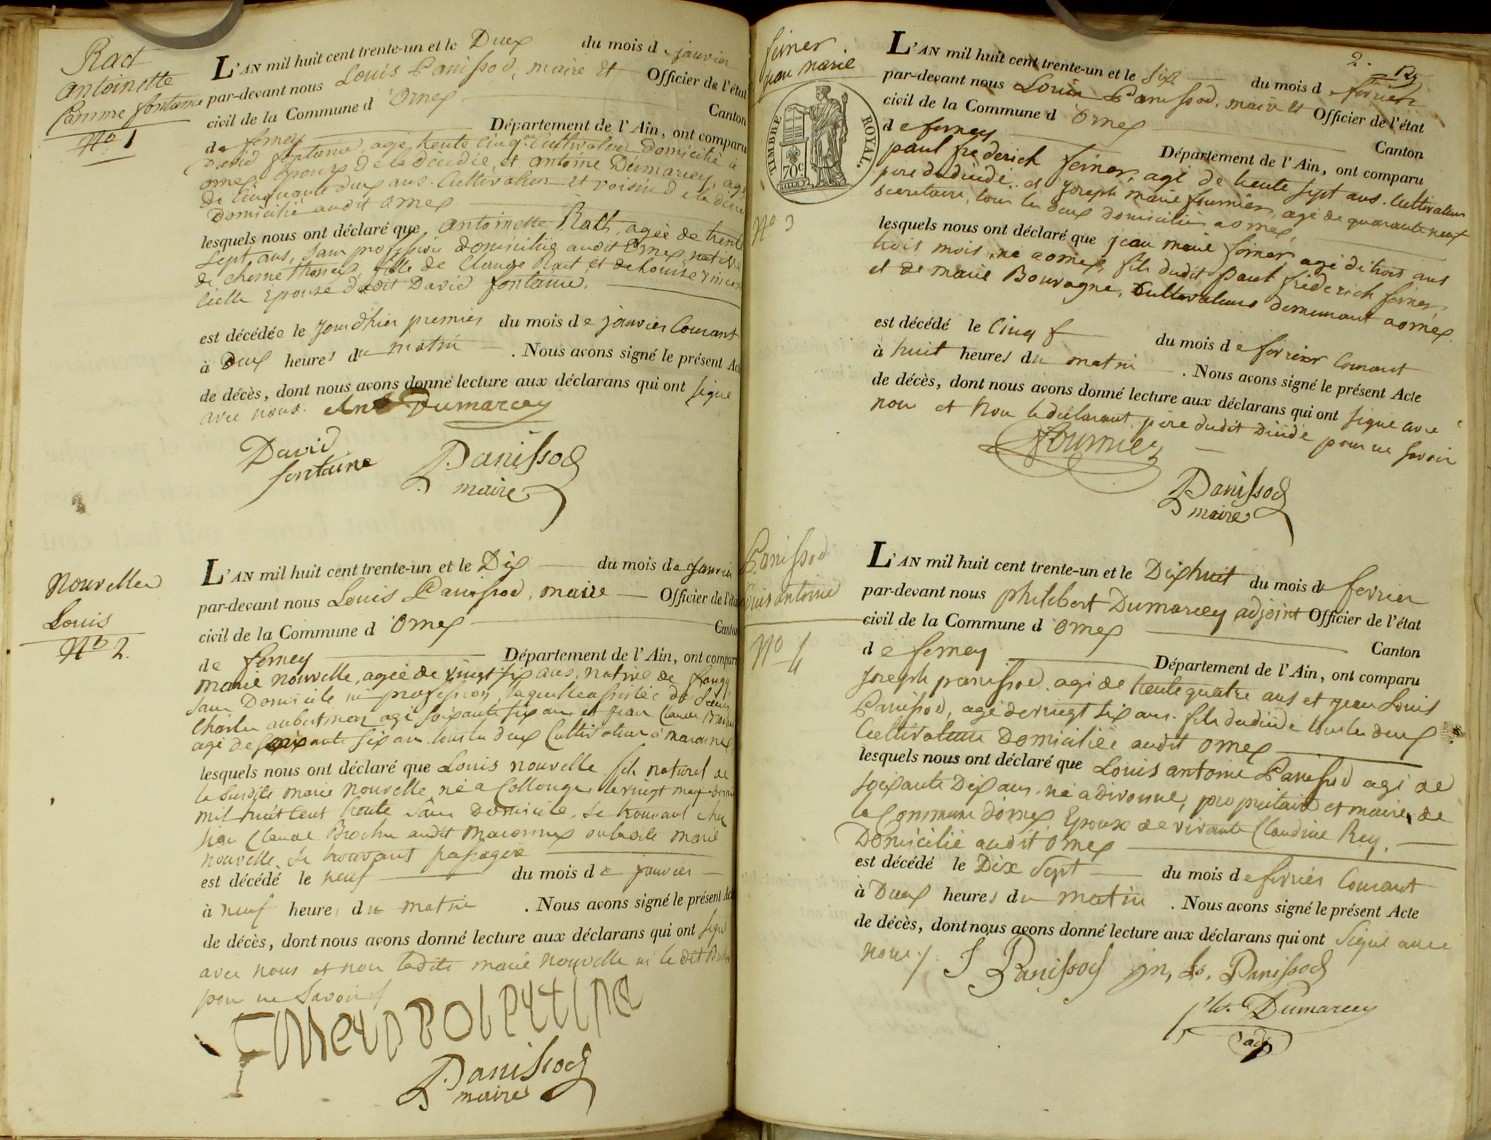 Ract
antoinette
femme fontaine
No 1
L'AN mil huit cent trente-un et le Deux du mois de janvier
par-devant nous Louis Panissod, maire et Officier de l'état
civil de la Commune d'Ornex Canton
de ferney Département de l'Ain, ont comparu
David fontaine, agé, trente cinq Cultivateur domicilié à
ornex Epoux de la décédée, et antoine Dumarcey, agé
de Cinquante deux ans. Cultivateur et voisin de la décé
Domicilié audit ornex
lesquels nous ont déclaré que antoinette Rath, agée de trente
Sept, ans, Sans profession domiciliée audit Ornex, native
de fille de Claude Ract et de Louise
Epouse dudit David fontaine.
est décédée le jourdhier premier du mois de janvier Courant
à Deux heures du matin . Nous avons signé le présent Acte
de décès, dont nous avons donné lecture aux déclarans qui ont signé
avec nous. Ant Dumarcey
David
fontaine
Panissod
maire
Nouvelle
Louis
No 2.
L'AN mil huit cent trente-un et le Dix du mois de janvier
par-devant nous Louis Panissod, maire Officier de l'état
civil de la Commune d'Ornex Canton
de ferney Département de l'Ain, ont comparu
Marie nouvelle, agée de vingt six ans, native de
Sans Domicile ni profession, laquelle assistée de Sieurs
Charles aubert agé Soixante six ans et jean Claude
agé de Soixante six ans tous les deux Cultivateurs à
lesquels nous ont déclaré que Louis nouvelle fils naturel de
la Susdite Marie Nouvelle né à Collonge le vingt neuf
mil huit cent trente Sans Domicile, Se trouvant chez
Claude audit ou ladite marie
nouvelle, Se trouvant passagère
est décédé le neuf du mois de janvier
à neuf heures du matin . Nous avons signé le présent Acte
de décès, dont nous avons donné lecture aux déclarans qui ont signé
avec nous et non ladite marie nouvelle ni le dit
pour ne Savoir
Panissod
maire
ferner.
jean Marie
TIMBRE ROYAL.
70c
No 3
2.
L'AN mil huit cent trente-un et le Six du mois de fevrier
par-devant nous Louis Panissod, maire et Officier de l'état
civil de la Commune d'Ornex Canton
de ferney Département de l'Ain, ont comparu
paul frederich ferner, agé de trente sept ans. Cultivateur
pere du décédé. et joseph marie fournier, agé de quarante neuf
secretaire, tous les deux domiciliés a ornex
lesquels nous ont déclaré que jean marie ferner agé de trois ans
trois mois, né a ornex, fils dudit paul frederich ferner,
et de marie Bouvagne, Cultivateurs demeurant a ornex.
est décédé le Cinq du mois de fevrier Courant
à huit heures du matin . Nous avons signé le présent Acte
de décès, dont nous avons donné lecture aux déclarans qui ont signé avec
nous et non le déclarant père dudit Décédé pour ne Savoir
fournier
Panissod
maire
Panissod
Louis antoine
No 4
L'AN mil huit cent trente-un et le Dixhuit du mois de fevrier
par-devant nous philibert Dumarcey adjoint Officier de l'état
civil de la Commune d'Ornex Canton
de ferney Département de l'Ain, ont comparu
joseph panissod. agé de trente quatre ans et jean Louis
Panissod, agé de vingt six ans. fils du décédé tous les deux
Cultivateurs Domiciliés audit Ornex
lesquels nous ont déclaré que Louis antoine Panissod agé de
soixante Dix ans. né a divonne, propriétaire et maire, de
la Commune d'ornex Epoux de vivante Claudine Rey.
Domicilié audit Ornex
est décédé le Dix Sept du mois de fevrier Courant
à Deux heures du matin . Nous avons signé le présent Acte
de décès, dont nous avons donné lecture aux déclarans qui ont Signé avec
nous. J Panissod jn, Ls. Panissod
Pht Dumarcey
adj